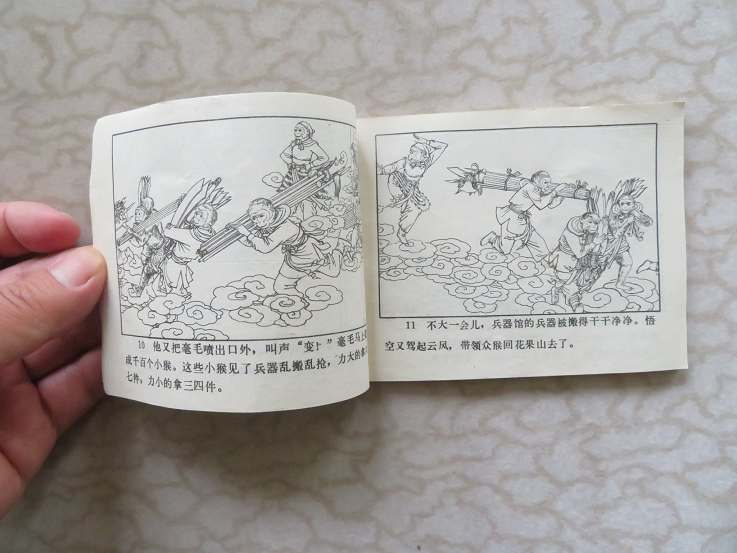 10 他又把毫毛喷出口外，叫声“变！”毫毛马上
成千百个小猴。这些小猴见了兵器乱搬乱抢，力大的拿
七件，力小的拿三四件。
11 不大一会儿，兵器馆的兵器被搬得干干净净。悟
空又驾起云风，带领众猴回花果山去了。